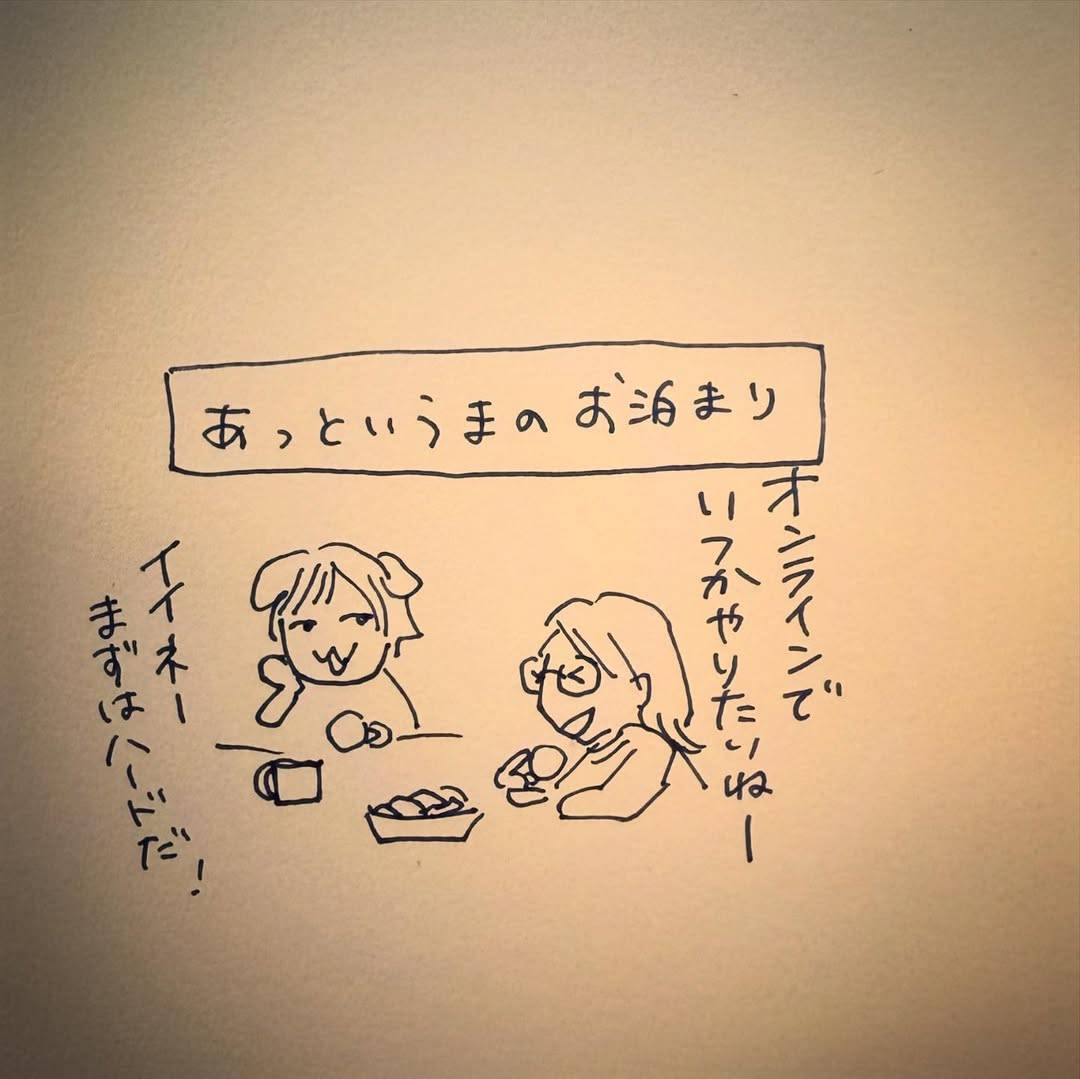 あっというまのお泊まり
オンラインで
いつかやりたいねー
イイネー
まずはハードだ!